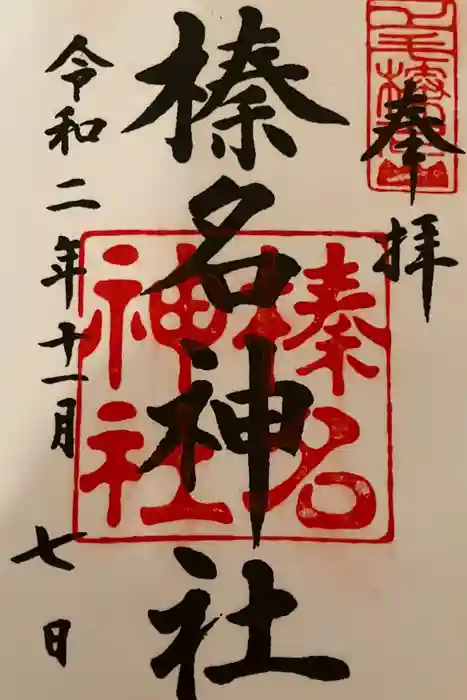 奉拝
榛名神社
榛名
神社
令和二年十一月七日